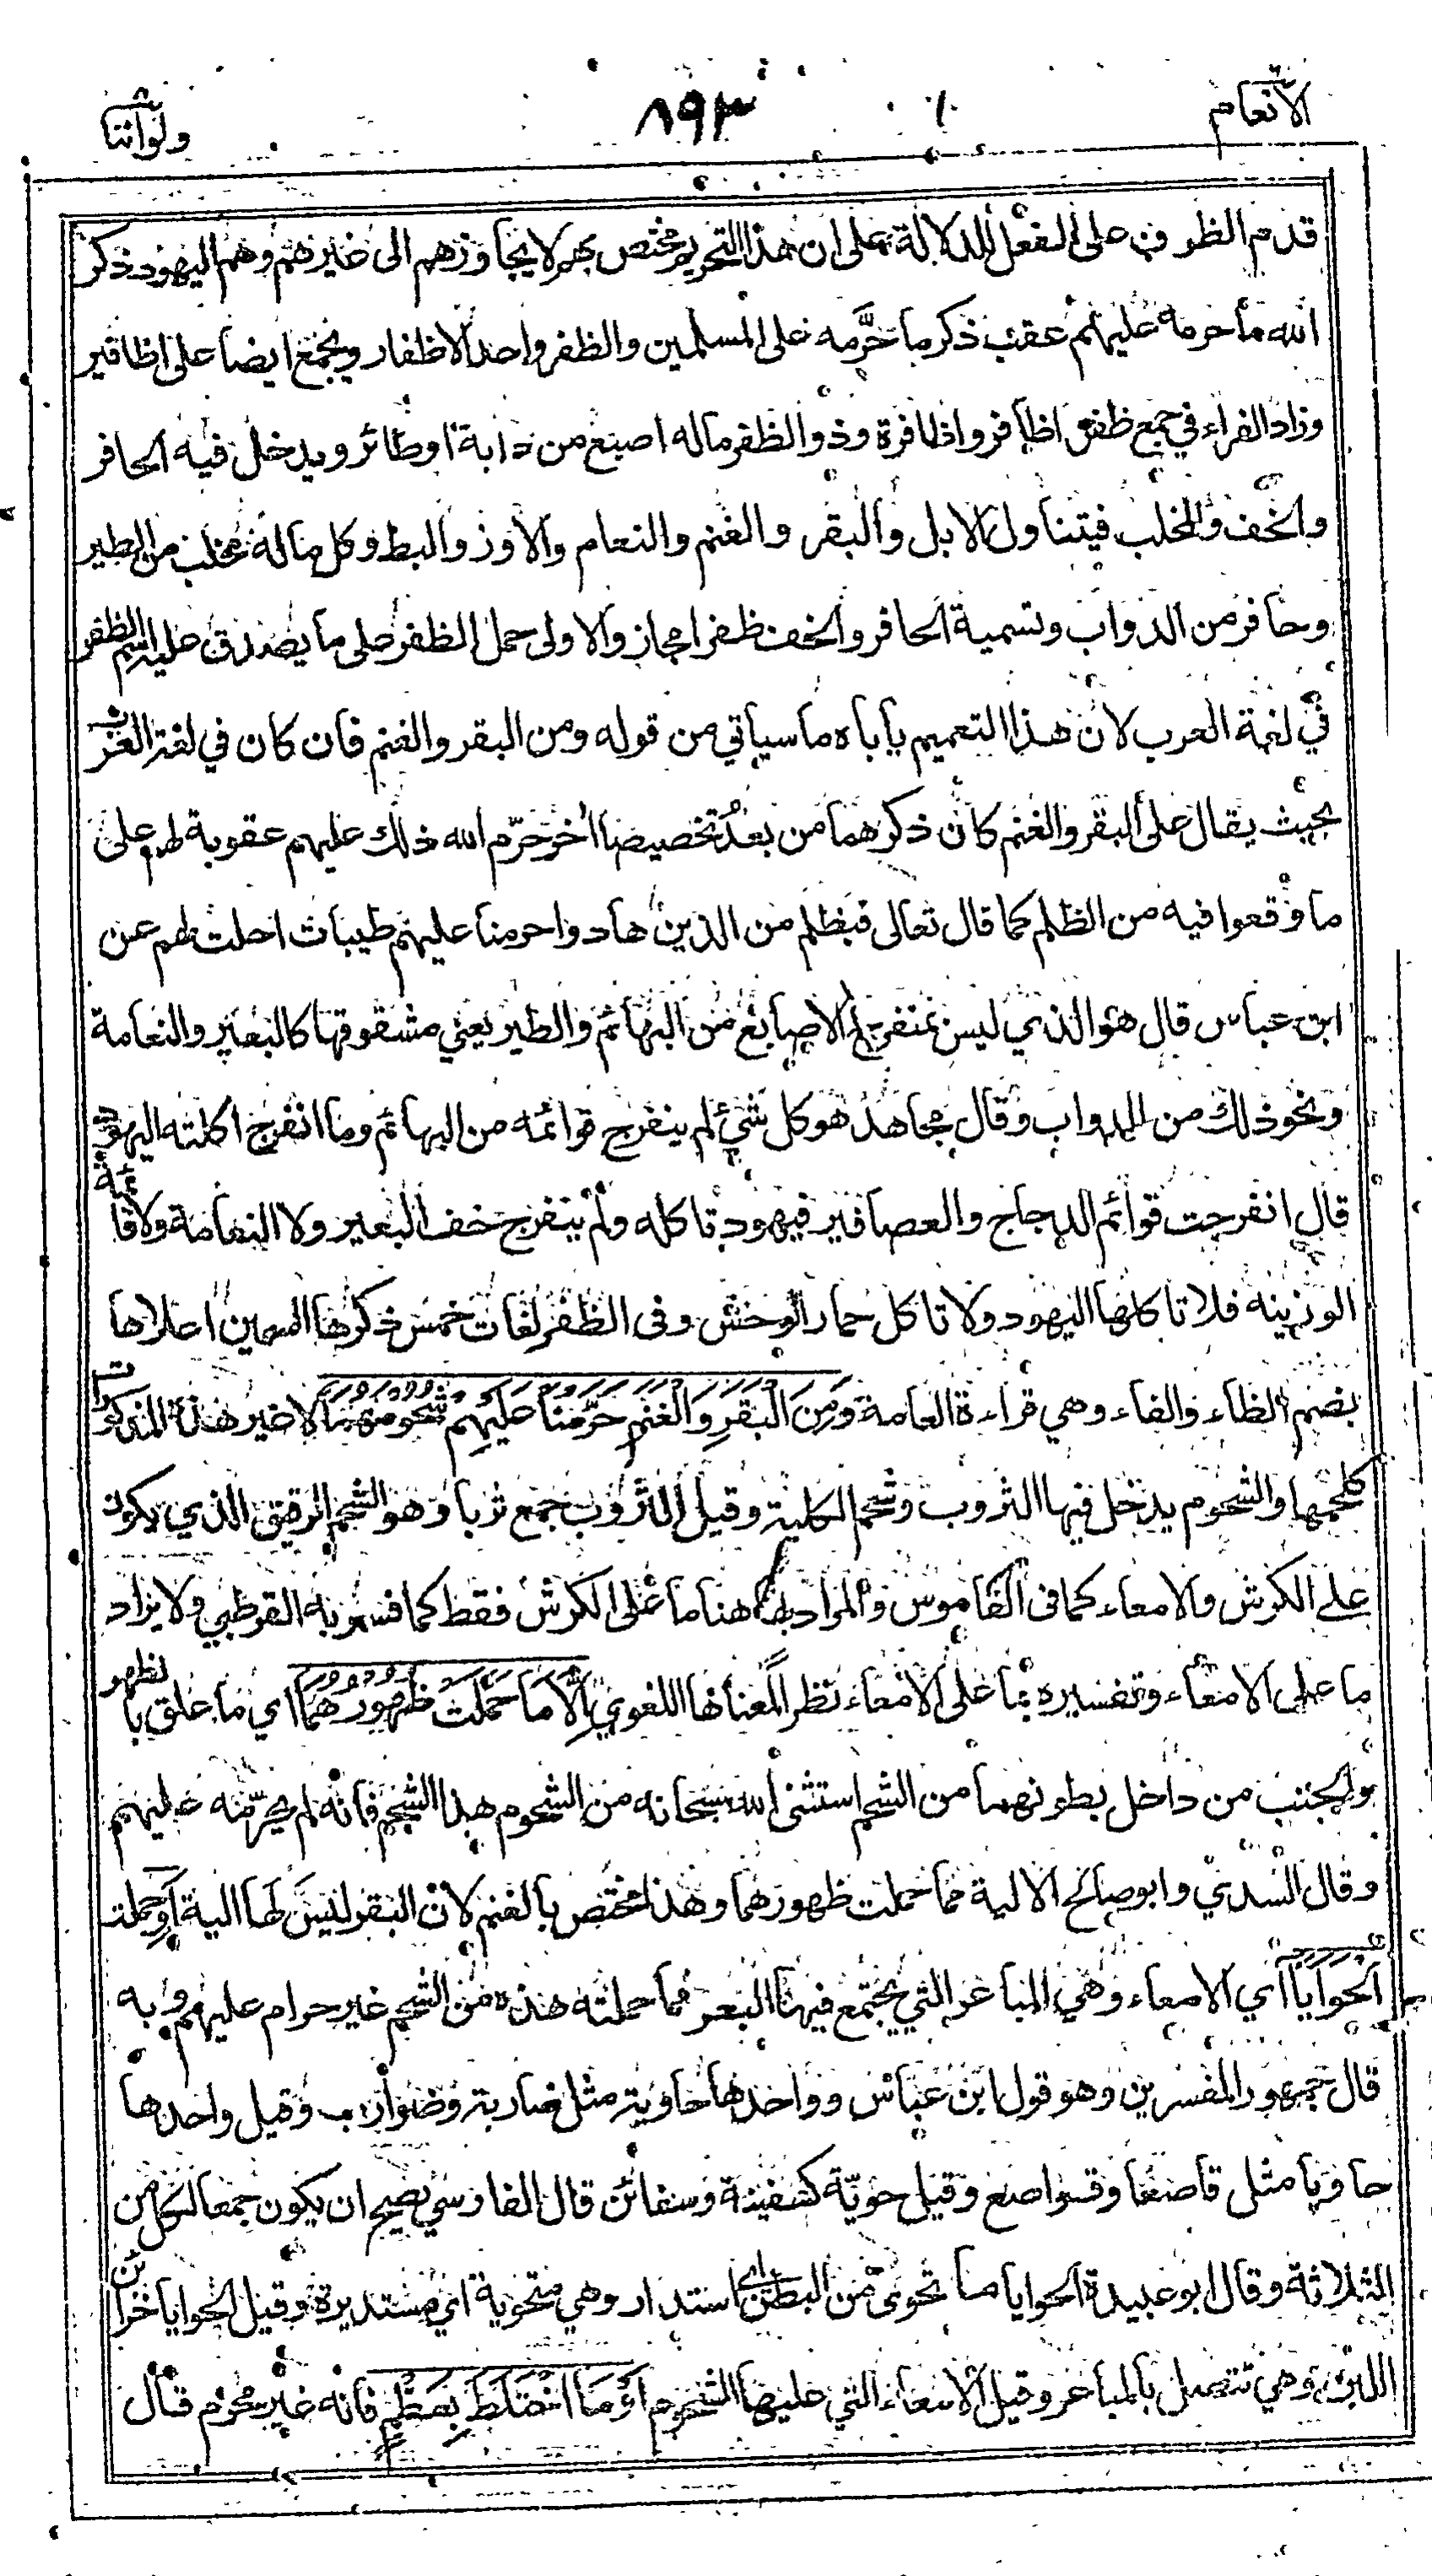 الانعام ٨٩٣ ولواننا
قدم الظرف على الفعل للدلالة على ان هذا التحريم مختص بهم لا يجاوزهم الى غيرهم وهم اليهود ذكر
الله ما حرمه عليهم عقب ذكر ما حرَّمه على المسلمين والظفر واحد الاظفار ويجمع ايضا على اظافير
وزاد الفراء في جمع ظفر اظافر واظافرة وذو الظفر ماله اصبع من دابة او طائر ويدخل فيه الحافر
والخف والمخلب فيتناول الابل والبقر والغنم والنعام والاوز والبط وكل ماله مخلب من الطير
وحافر من الدواب وتسمية الحافر والخف ظفرا مجاز والاولى حمل الظفر على ما يصدق عليه اسم الظفر
في لغة العرب لان هذا التعميم يأباه ما سيأتي من قوله ومن البقر والغنم فان كان في لغة العرب
بحيث يقال على البقر والغنم كان ذكرهما من بعدُ تخصيصا اخر حرّم الله ذلك عليهم عقوبة لهم على
ما وقعوا فيه من الظلم كما قال تعالى فبظلم من الذين هادوا حرمنا عليهم طيبات احلت لهم عن
ابن عباس قال هو الذي ليس بمنفرج الاصابع من البهائم والطير يعني مشقوقها كالبعير والنعامة
ونحو ذلك من الدواب وقال مجاهد هو كل شيء لم ينفرج قوائمه من البهائم وما انفرج اكلته اليهود
قال انفرجت قوائم الدجاج والعصافير فيهود تاكله ولم ينفرج خف البعير ولا النعامة ولا قائمة
الوزينه فلا تاكلها اليهود ولا تاكل حمار الوحش وفى الظفر لغات خمس ذكرها السمين اعلاها
بضم الظاء والفاء وهي قراءة العامة وَمِنَ الْبَقَرِ وَالْغَنَمِ حَرَّمْنَا عَلَيْهِمْ شُحُومَهُمَا لا غير هذه المذكورات
كلحمها والشحوم يدخل فيها الثروب وشحم الكلية وقيل الثروب جمع ثربا وهو الشحم الرقيق الذي يكون
على الكرش والامعاء كما فى القاموس والمراد بها هنا ما على الكرش فقط كما فسر به القرطبي ولا يراد
ما على الامعاء وتفسيره بما على الامعاء نظرا لمعناها اللغوي اِلَّا مَا حَمَلَتْ ظُهُورُهُمَا اي ما علق بالظهر
والجنب من داخل بطونهما من الشحم استثنى الله سبحانه من الشحوم هذا الشحم فانه لم يحرّمه عليهم
وقال السدي وابو صالح الالية مما حملت ظهورهما وهذا مختص بالغنم لان البقر ليس لها الية اَوْ حملت
الْحَوَايَا اي الامعاء وهي المباعر التي يجتمع فيها البعر مما حملته هذه من الشحم غير حرام عليهم وبه
قال جمهور المفسرين وهو قول ابن عباس وواحدها حاوية مثل ضاربة وضوارب وقيل واحدها
حاويا مثل قاصعا وقواصع وقيل حويّة كسفينة وسفائن قال الفارسي يصح ان يكون جمعا لكل من
الثلاثة وقال ابو عبيدة الحوايا ما تحوى من البطن اي استدار وهي متحوية اي مستديرة وقيل الحوايا خزائن
اللبن وهي تتصل بالمباعر وقيل الامعاء التي عليها الشحوم اَوْ مَا اخْتَلَطَ بِعَظْمٍ فانه غير محرم قال